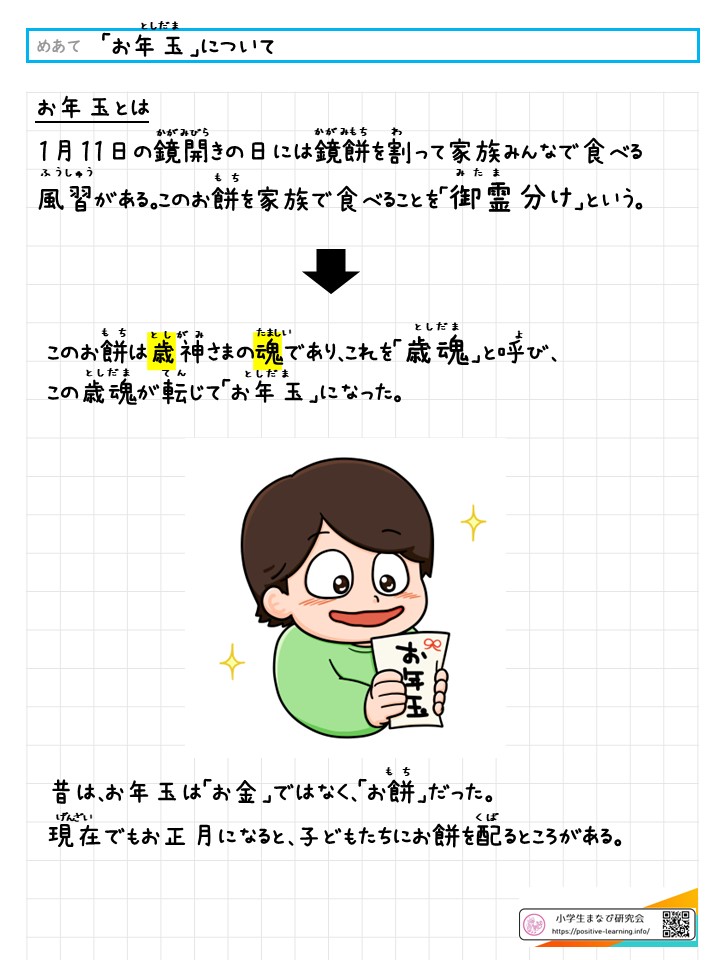 めあて 「お年玉」について
としだま
お年玉とは
かがみびら かがみもち わ
1月11日の鏡開きの日には鏡餅を割って家族みんなで食べる
ふうしゅう もち みたま
風習がある。このお餅を家族で食べることを「御霊分け」という。
もち としがみ たましい としだま よ
このお餅は歳神さまの魂であり、これを「歳魂」と呼び、
としだま てん としだま
この歳魂が転じて「お年玉」になった。
お年玉
もち
昔は、お年玉は「お金」ではなく、「お餅」だった。
げんざい くば
現在でもお正月になると、子どもたちにお餅を配るところがある。
小学生まなび研究会
https://positive-learning.info/